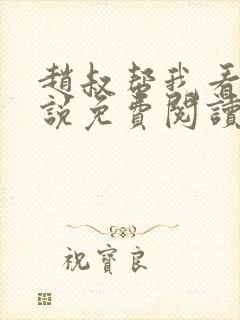 趙叔帮我看
説免費閱讀
祝寶良